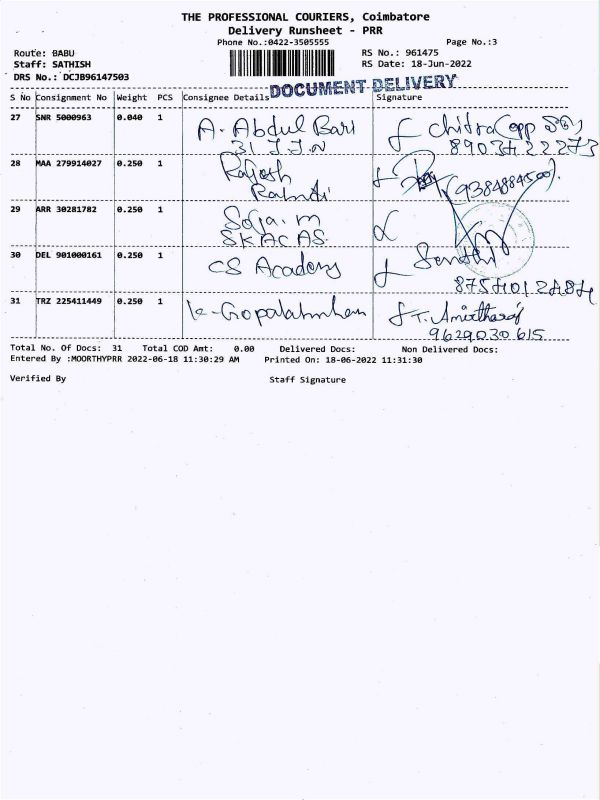 THE PROFESSIONAL COURIERS, Coimbatore
Delivery Runsheet - PRR
Phone No.:0422-3505555
Page No.:3
Route: BABU
RS No.: 961475
Staff: SATHISH
RS Date: 18-Jun-2022
DRS No.: DCJB96147503
DOCUMENT DELIVERY
S No Consignment No Weight PCS Consignee Details Signature
27 SNR 5000963 0.040 1 A. Abdul Bari chitra
31 J.J.N 8903422273
28 MAA 279914027 0.250 1 Rajesh
(9384884500).
29 ARR 30281782 0.250 1 Soja.m
SKACAS.
30 DEL 901000161 0.250 1 CS Academy Senthil
8754012484
31 TRZ 225411449 0.250 1 T. Amirtharaj
9629030615
Total No. Of Docs: 31 Total COD Amt: 0.00 Delivered Docs: Non Delivered Docs:
Entered By :MOORTHYPRR 2022-06-18 11:30:29 AM Printed On: 18-06-2022 11:31:30
Verified By Staff Signature